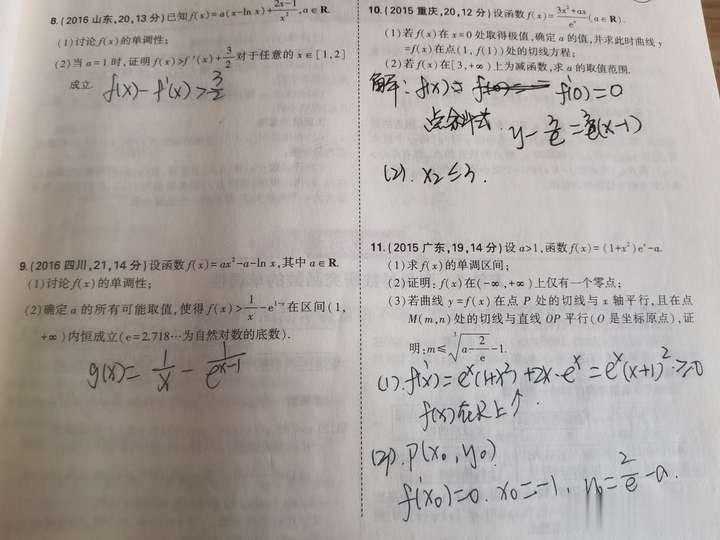 8.(2016 山东,20,13分)已知f(x)=a(x-ln x)+\frac{2x-1}{x²},a∈R.
(1)讨论f(x)的单调性;
(2)当a=1时,证明f(x)>f'(x)+\frac{3}{2}对于任意的x∈[1,2]
成立.
f(x)-f'(x)>\frac{3}{2}
9.(2016 四川,21,14分)设函数f(x)=ax²-a-ln x,其中a∈R.
(1)讨论f(x)的单调性;
(2)确定a的所有可能取值,使得f(x)>\frac{1}{x}-e^{1-x}在区间(1,
+∞)内恒成立(e=2.718…为自然对数的底数).
g(x)=\frac{1}{x}-\frac{1}{e^{x-1}}
10.(2015 重庆,20,12分)设函数f(x)=\frac{3x²+ax}{e^x}(a∈R).
(1)若f(x)在x=0处取得极值,确定a的值,并求此时曲线y
=f(x)在点(1,f(1))处的切线方程;
(2)若f(x)在[3,+∞)上为减函数,求a的取值范围.
解:f(x)= f'(0)=0
点斜式.y-\frac{3}{e}=\frac{3}{e}(x-1)
(2).x2≤3.
11.(2015 广东,19,14分)设a>1,函数f(x)=(1+x²)e^x-a.
(1)求f(x)的单调区间;
(2)证明:f(x)在(-∞,+∞)上仅有一个零点;
(3)若曲线y=f(x)在点P处的切线与x轴平行,且在点
M(m,n)处的切线与直线OP平行(O是坐标原点),证
明:m≤\sqrt[3]{a-\frac{2}{e}}-1.
(1).f'(x)=e^x(1+x²)+2x·e^x=e^x(x+1)²≥0
f(x)在R上↑.
(3).P(x0,y0)
f'(x0)=0.x0=-1,y0=\frac{2}{e}-a.